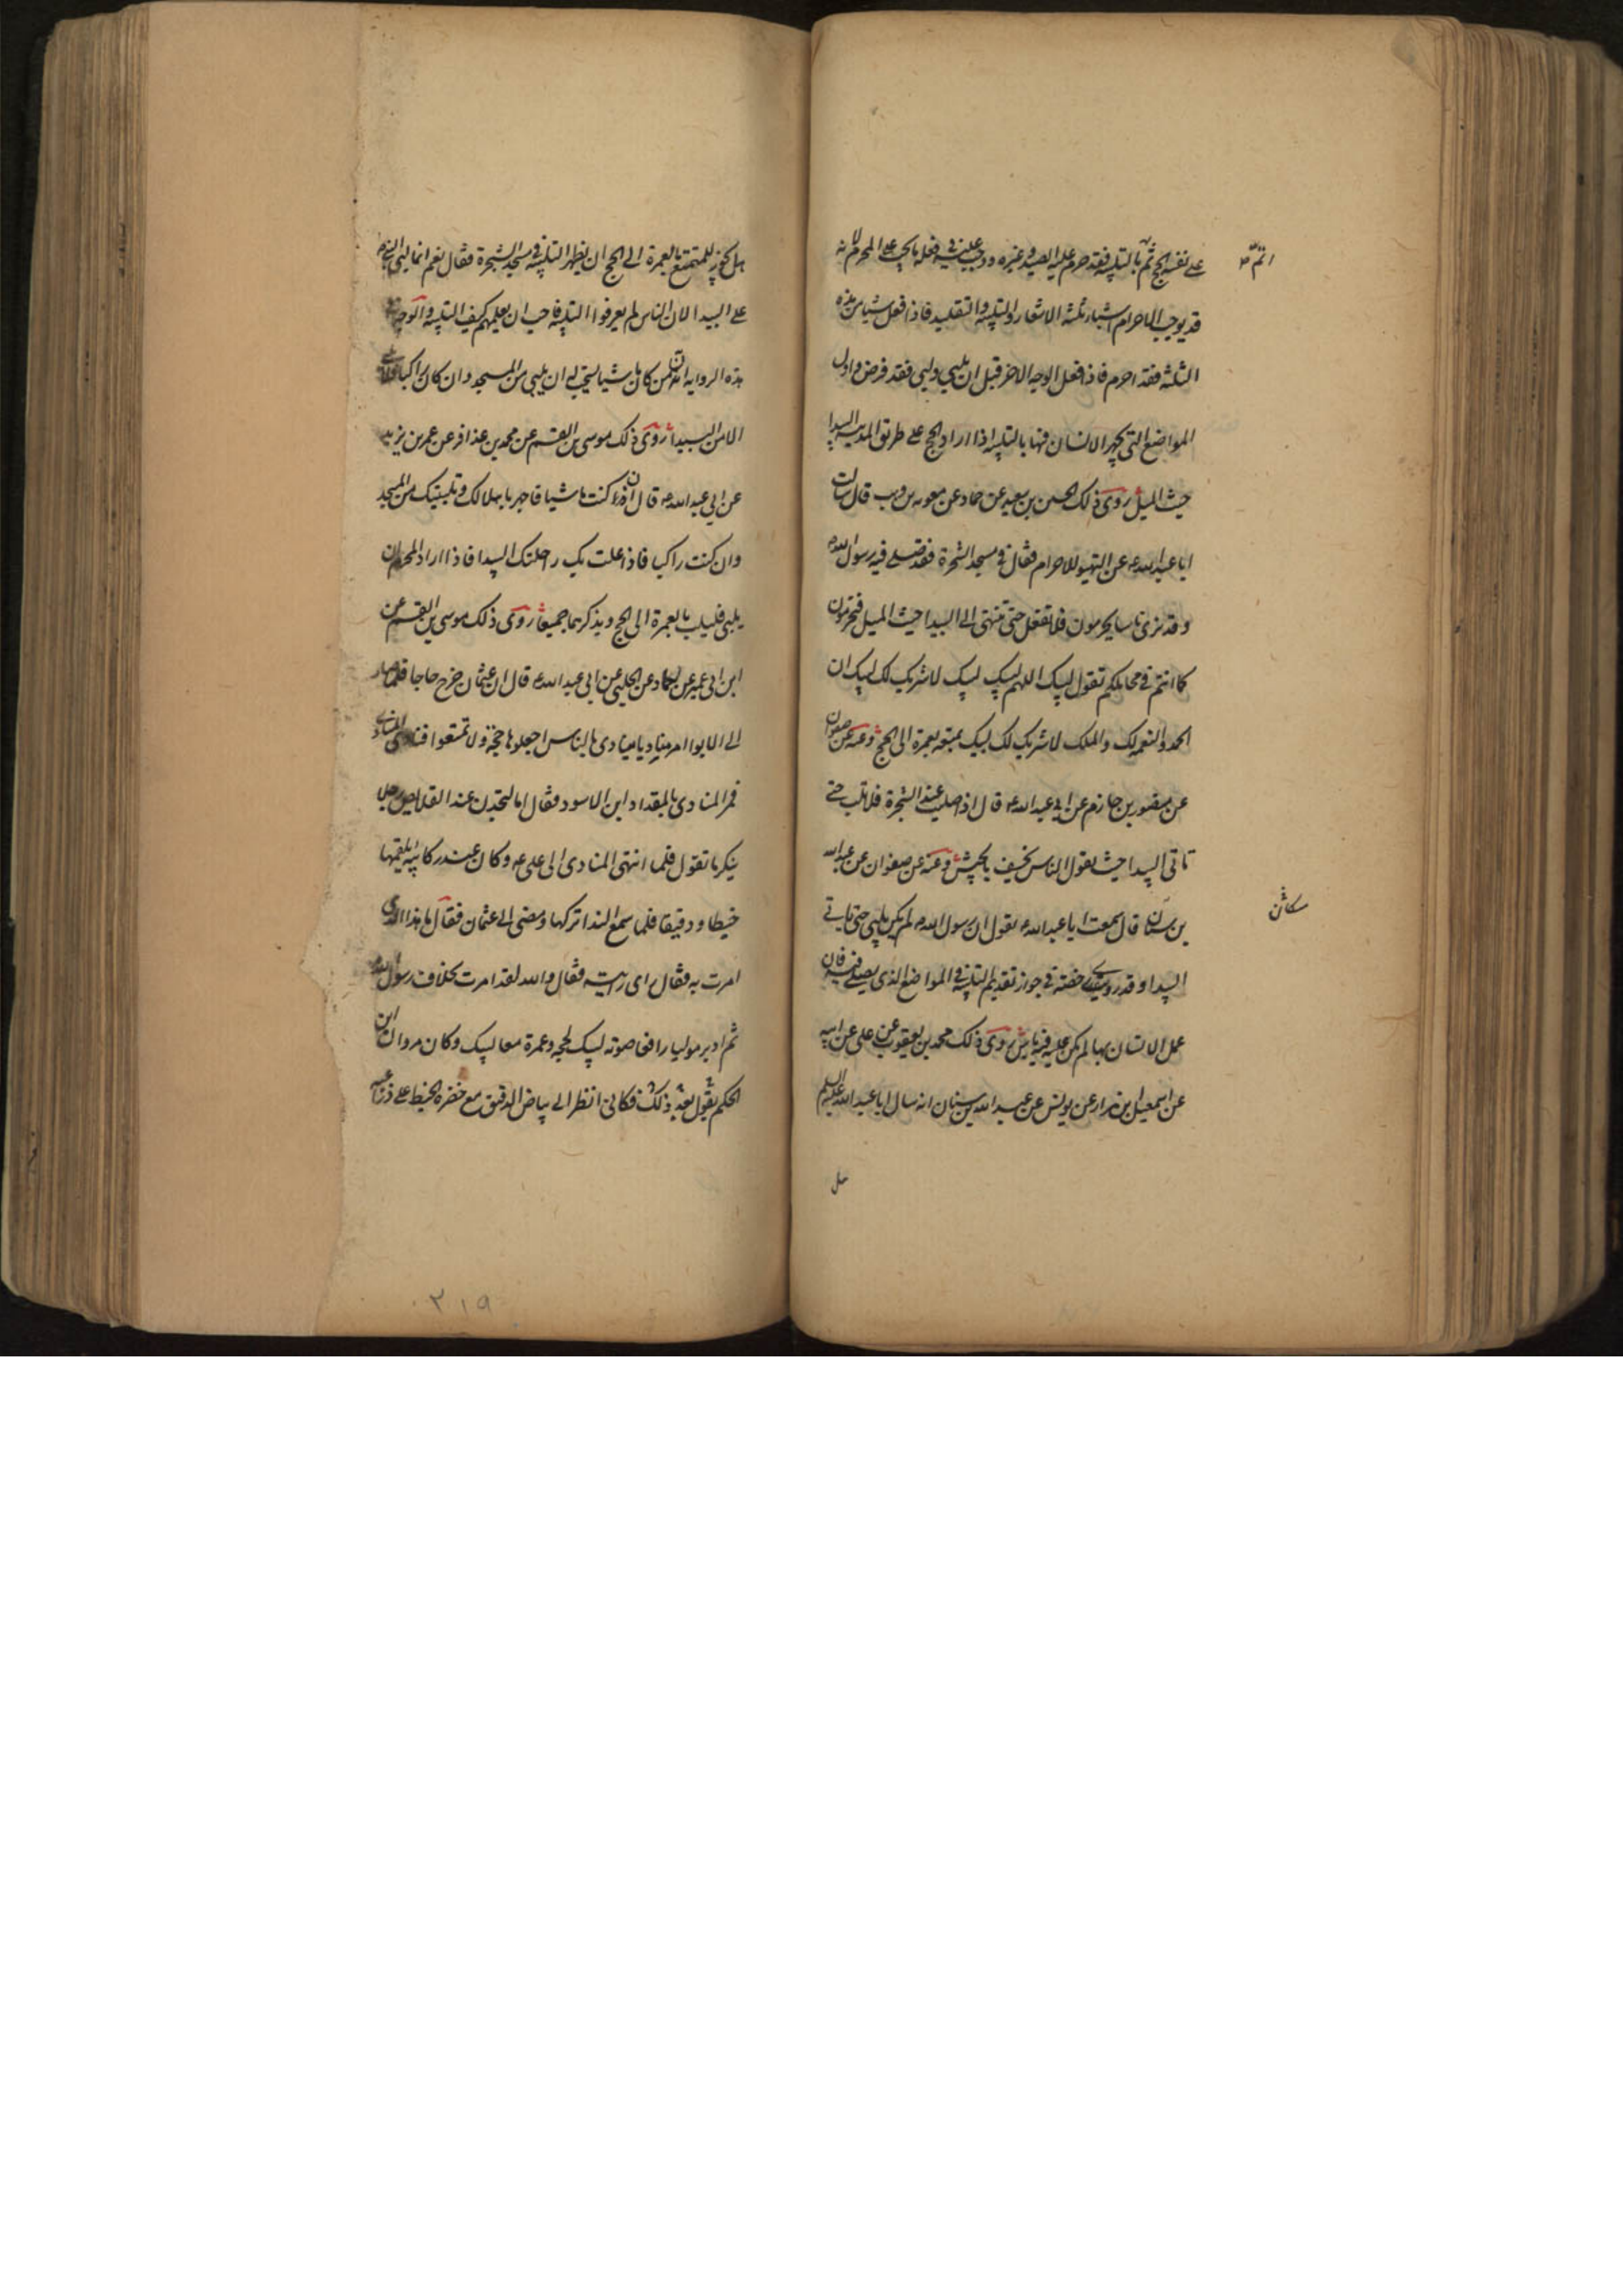 على نفسه الحج ثم بالتلبيه فقد حرم عليه الصيد وغيره ووجب عليه في فعله ما يجب على المحرم لانه
اتم
قد يوجب الاحرام اشياء ثلثه الاشعار والتلبيه والتقليد فاذا فعل شيا من هذه
الثلثه فقد احرم فاذا فعل الوجه الاخر قبل ان يلبي ولبى فقد فرض واول
المواضع التي يجهر الانسان فيها بالتلبيه اذا اراد الحج على طريق المدينه البيدا
حيث الميل روى ذلك الحسين بن سعيد عن حماد عن معويه بن وهب قال سالت
ابا عبد الله ع عن التهيو للاحرام فقال في مسجد الشجرة فقد صلى فيه رسول الله
وقد ترى ناسا يحرمون فلا تفعل حتى تنتهى الى البيدا حيث الميل فتحرمون
كما انتم في محاملكم تقول لبيك اللهم لبيك لبيك لا شريك لك لبيك ان
الحمد والنعمه لك والملك لا شريك لك لبيك بمتعه بعمرة الى الحج وعنه عن صفوان
عن منصور بن حازم عن ابي عبد الله ع قال اذا صليت عند الشجرة فلا تلب حتى
تاتى البيدا حيث يقول الناس يخسف بالجيش وعنه عن صفوان عن عبد الله
بن سنان قال سمعت ابا عبد الله ع يقول ان رسول الله ص لم يكن يلبي حتى ياتي
سكان
البيدا وقد رويت رخصه في جواز تقديم التلبيه في المواضع الذي يصلى فيه فان
عمل الانسان بها لم يكن عليه فيه باس روى ذلك محمد بن يعقوب عن على عن ابيه
عن اسمعيل بن مرار عن يونس عن عبد الله بن سنان انه سال ابا عبد الله عليه السلم
هل
هل يجوز للمتمتع بالعمرة الى الحج ان يظهر التلبيه في مسجد الشجرة فقال نعم انما لبى النبي ص
على البيدا لان الناس لم يعرفوا التلبيه فاحب ان يعلمهم كيف التلبيه والوجه في
هذه الروايه ان من كان ماشيا يستحب له ان يلبي من المسجد وان كان راكبا فلا يلبي
الا من البيدا روى ذلك موسى بن القسم عن محمد بن عذافر عن عمر بن يزيد
عن ابي عبد الله ع قال ان كنت ماشيا فاجهر باهلالك وتلبيتك من المسجد
وان كنت راكبا فاذا علت بك راحلتك البيدا فاذا اراد المحرم ان
يلبى فليلب بالعمرة الى الحج ويذكرهما جميعا روى ذلك موسى بن القسم عن
ابن ابي عمير عن حماد عن الحلبي عن ابي عبد الله ع قال ان عثمان خرج حاجا فلما صار
الى الابوا امر مناديا ينادى بالناس اجعلوها حجة ولا تمتعوا فنادى المنادى
فمر المنادى بالمقداد ابن الاسود فقال اما لتجدن عند القلايص رجلا
ينكر ما تقول فلما انتهى المنادى الى على ع وكان عند ركايبه يلقمها
خبطا ودقيقا فلما سمع الندا تركها ومضى الى عثمان فقال ما هذا الذى
امرت به فقال راى رايته فقال والله لقد امرت بخلاف رسول الله
ثم ادبر موليا رافعا صوته لبيك بحجه وعمرة معا لبيك وكان مروان ابن
الحكم يقول بعد ذلك فكانى انظر الى بياض الدقيق مع خضرة الخبط على ذراعيه
٢١٩